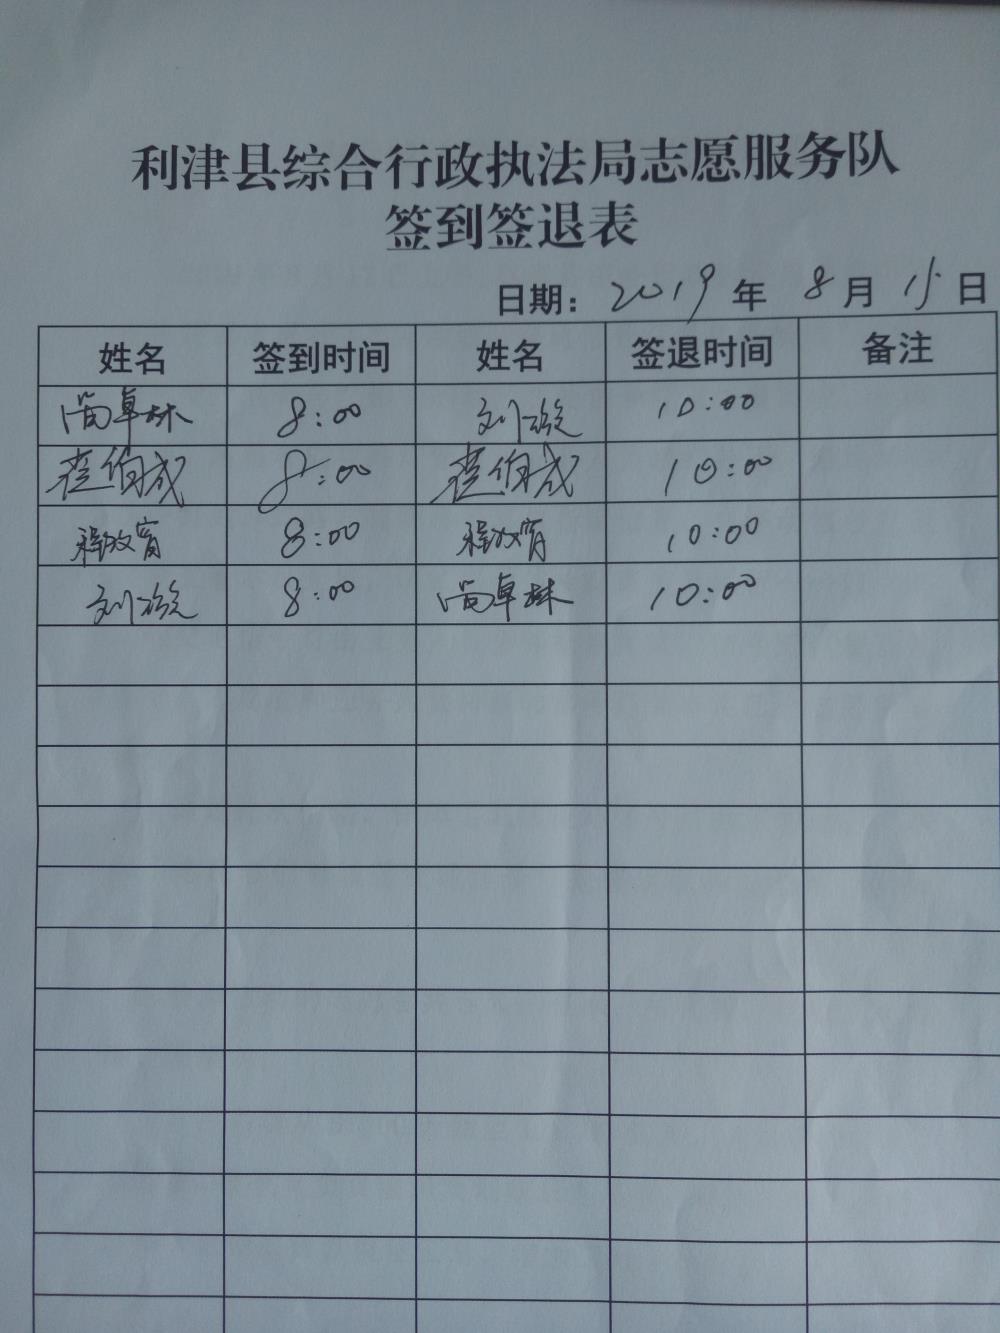 利津县综合行政执法局志愿服务队
签到签退表
日期：2019年8月15日
姓名 签到时间 姓名 签退时间 备注
尚卓林 8:00 刘璇 10:00
8:00 10:00
程政霄 8:00 程政霄 10:00
刘璇 8:00 尚卓林 10:00